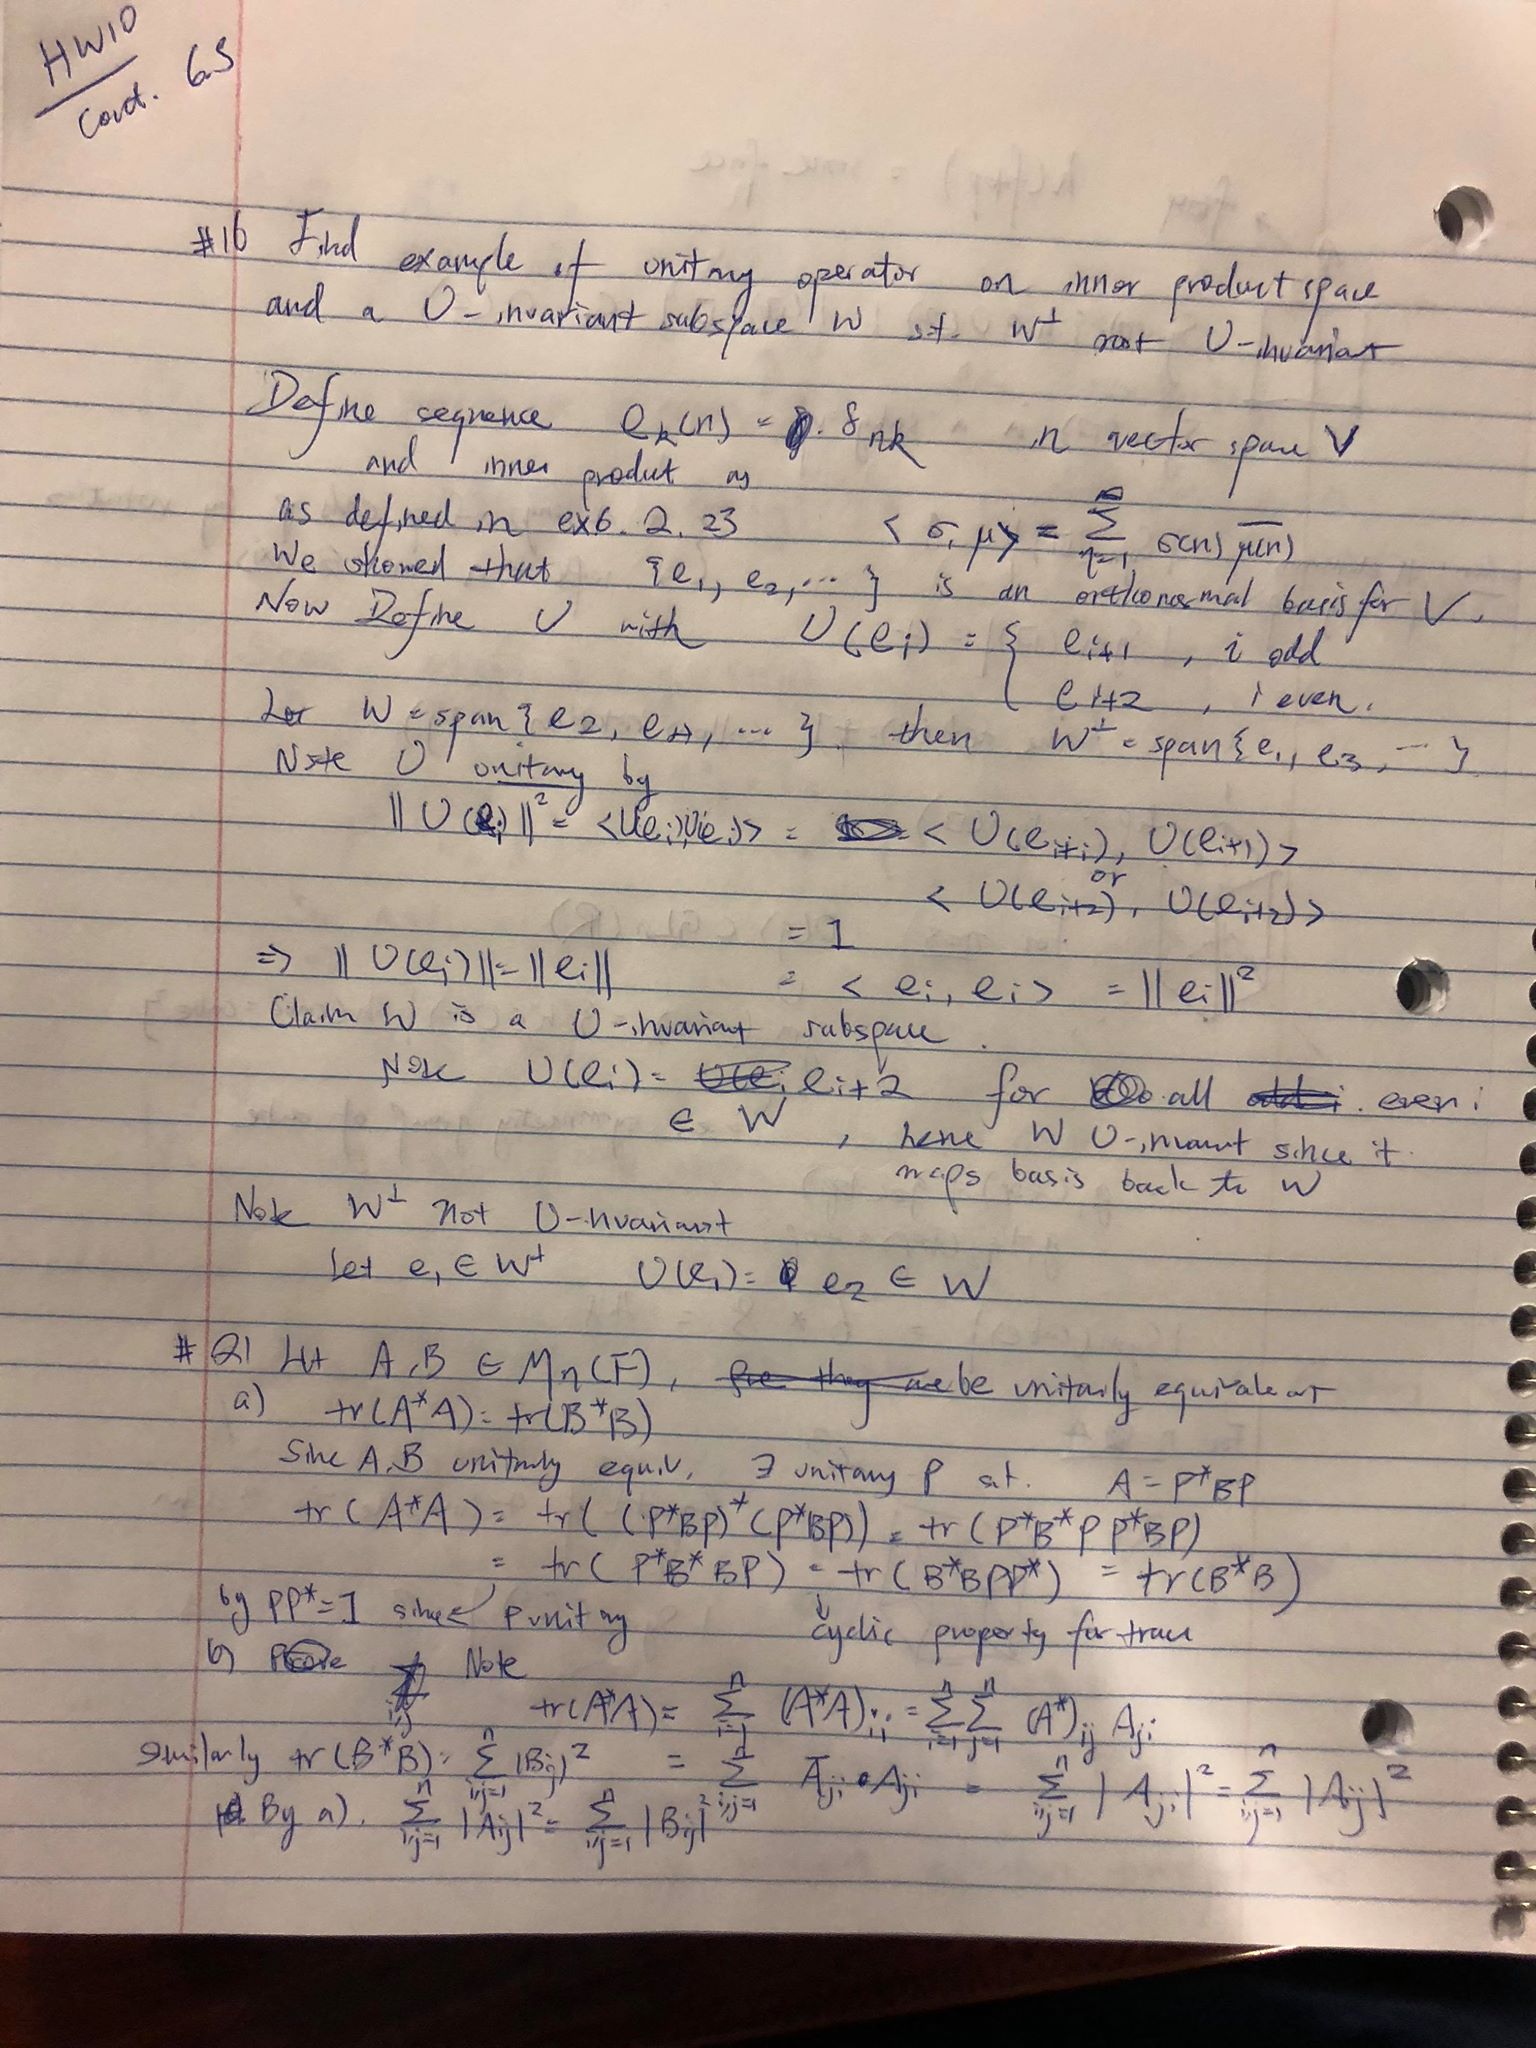 HW10
Cont. 6.5
#16 Find example of unitary operator on inner product space
and a U-invariant subspace W st. W⊥ not U-invariant
Define sequence e_k(n) = δ_nk in vector space V
and inner product as
as defined in ex 6.2.23 <σ, μ> = Σ_{n=1}^∞ σ(n) \overline{μ(n)}
We showed that {e_1, e_2, ...} is an orthonormal basis for V.
Now Define U with U(e_i) = { e_{i+1}, i odd
e_{i+2}, i even.
Let W = span{e_2, e_4, ...} then W⊥ = span{e_1, e_3, ...}
Note U unitary by
||U(e_i)||² = <U(e_i), U(e_i)> = <U(e_{i+1}), U(e_{i+1})>
or
<U(e_{i+2}), U(e_{i+2})>
= 1
=> ||U(e_i)|| = ||e_i|| = <e_i, e_i> = ||e_i||²
Claim W is a U-invariant subspace.
Note U(e_i) = e_{i+2} for all even i
∈ W, hence W U-invariant since it
maps basis back to W
Note W⊥ not U-invariant
Let e_1 ∈ W⊥ U(e_1) = e_2 ∈ W
#21 Let A, B ∈ M_n(F), be unitarily equivalent
a) tr(A*A) = tr(B*B)
Since A, B unitarily equiv. ∃ unitary P st. A = P*BP
tr(A*A) = tr((P*BP)*(P*BP)) = tr(P*B*PP*BP)
= tr(P*B*BP) = tr(B*BPP*) = tr(B*B)
by PP* = I since P unitary cyclic property for trace
b) Note
tr(A*A) = Σ_{i=1}^n (A*A)_{ii} = Σ_{i=1}^n Σ_{j=1}^n (A*)_{ij} A_{ji}
Similarly tr(B*B) = Σ_{i,j=1}^n |B_{ij}|² = Σ_{i,j=1}^n \overline{A}_{ji} · A_{ji} = Σ_{i,j=1}^n |A_{ji}|² = Σ_{i,j=1}^n |A_{ij}|²
By a). Σ_{i,j=1}^n |A_{ij}|² = Σ_{i,j=1}^n |B_{ij}|²